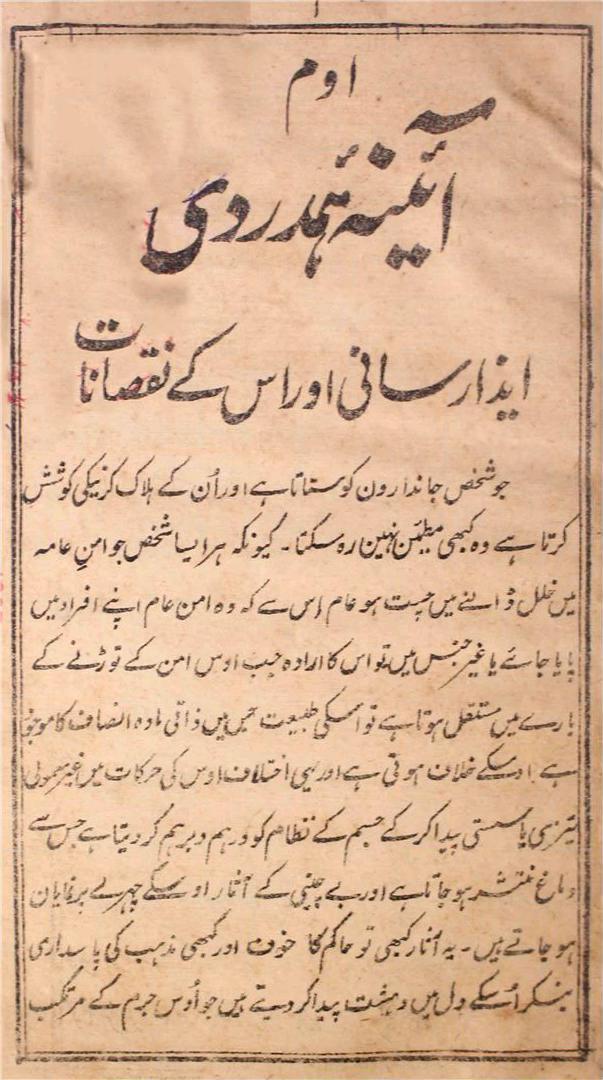 ا
اوم
آئینۂ ہمدردی
ایذا رسانی اور اس کے نقصانات
جو شخص جاندارون کو ستاتا ہے اور اُن کے ہلاک کرنیکی کوشش
کرتا ہے وہ کبھی مطمئن نہین رہ سکتا۔ کیونکہ ہر ایسا شخص جو امنِ عامہ
میں خلل ڈالنے میں چست ہو عام اِس سے کہ وہ امن عام اپنے افراد میں
پایا جائے یا غیر جنس میں تو اس کا ارادہ جب اوس امن کے توڑنے کے
بارے میں مستقل ہوتا ہے تو اسکی طبیعت جس میں ذاتی مادہ انصاف کا موجود
ہے اوسکے خلاف ہوتی ہے اور یہی اختلاف اوس کی حرکات میں غیر معمولی
تیزی یا سستی پیدا کر کے جسم کے نظام کو درہم و برہم کر دیتا ہے جس سے
دماغ منتشر ہو جاتا ہے اور بے چینی کے آثار اوسکے چہرے پر نمایان
ہو جاتے ہیں۔ یہ آثار کبھی تو حاکم کا خوف اور کبھی مذہب کی پاسداری
بنکر اُسکے دل میں دہشت پیدا کر دیتے ہیں جو اُوس جرم کے مرتکب